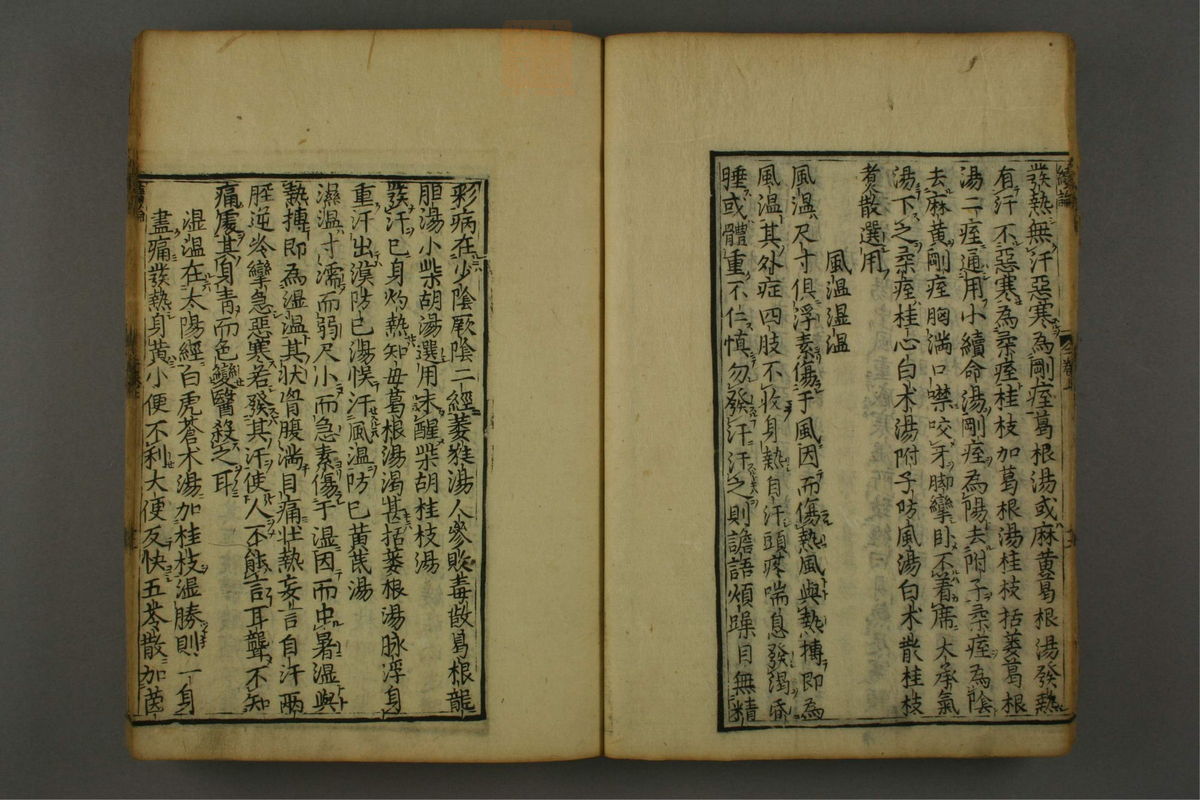 發熱無汗惡寒為剛痓葛根湯或麻黄葛根湯發熱
有汗不惡寒為柔痓桂枝加葛根湯桂枝括蒌葛根
湯二痓通用小續命湯剛痓為陽去附子柔痓為陰
去麻黄剛痓胸満口噤咬牙脚攣臥不着席大承氣
湯下之柔痓桂心白术湯附子防風湯白术散桂枝
煮散選用
風温湿温
風温尺寸俱浮素傷于風因而傷熱風與熱搏即為
風温其外症四肢不收身熱自汗頭疼喘息發渇昏
睡或體重不仁慎勿發汗汗之則譫語煩躁目無精
彩病在少陰厥陰二經萎蕤湯人參敗毒散葛根龍
胆湯小柴胡湯選用未醒柴胡桂枝湯
發汗已身灼熱知毋葛根湯渇甚括蒌根湯脉浮身
重汗出漠防已湯悮汗風温防已黄芪湯
濕温寸濡而弱尺小而急素傷于湿因而中暑湿與
熱搏即為湿温其状胷腹満目痛壮熱妄言自汗两
脛逆冷攣急惡寒若發其汗使人不能言耳聾不知
痛處其身青而色變醫殺之耳
湿温在太陽經白虎蒼术湯加桂枝湿勝則一身
盡痛發熱身黄小便不利大便反快五苓散加茵